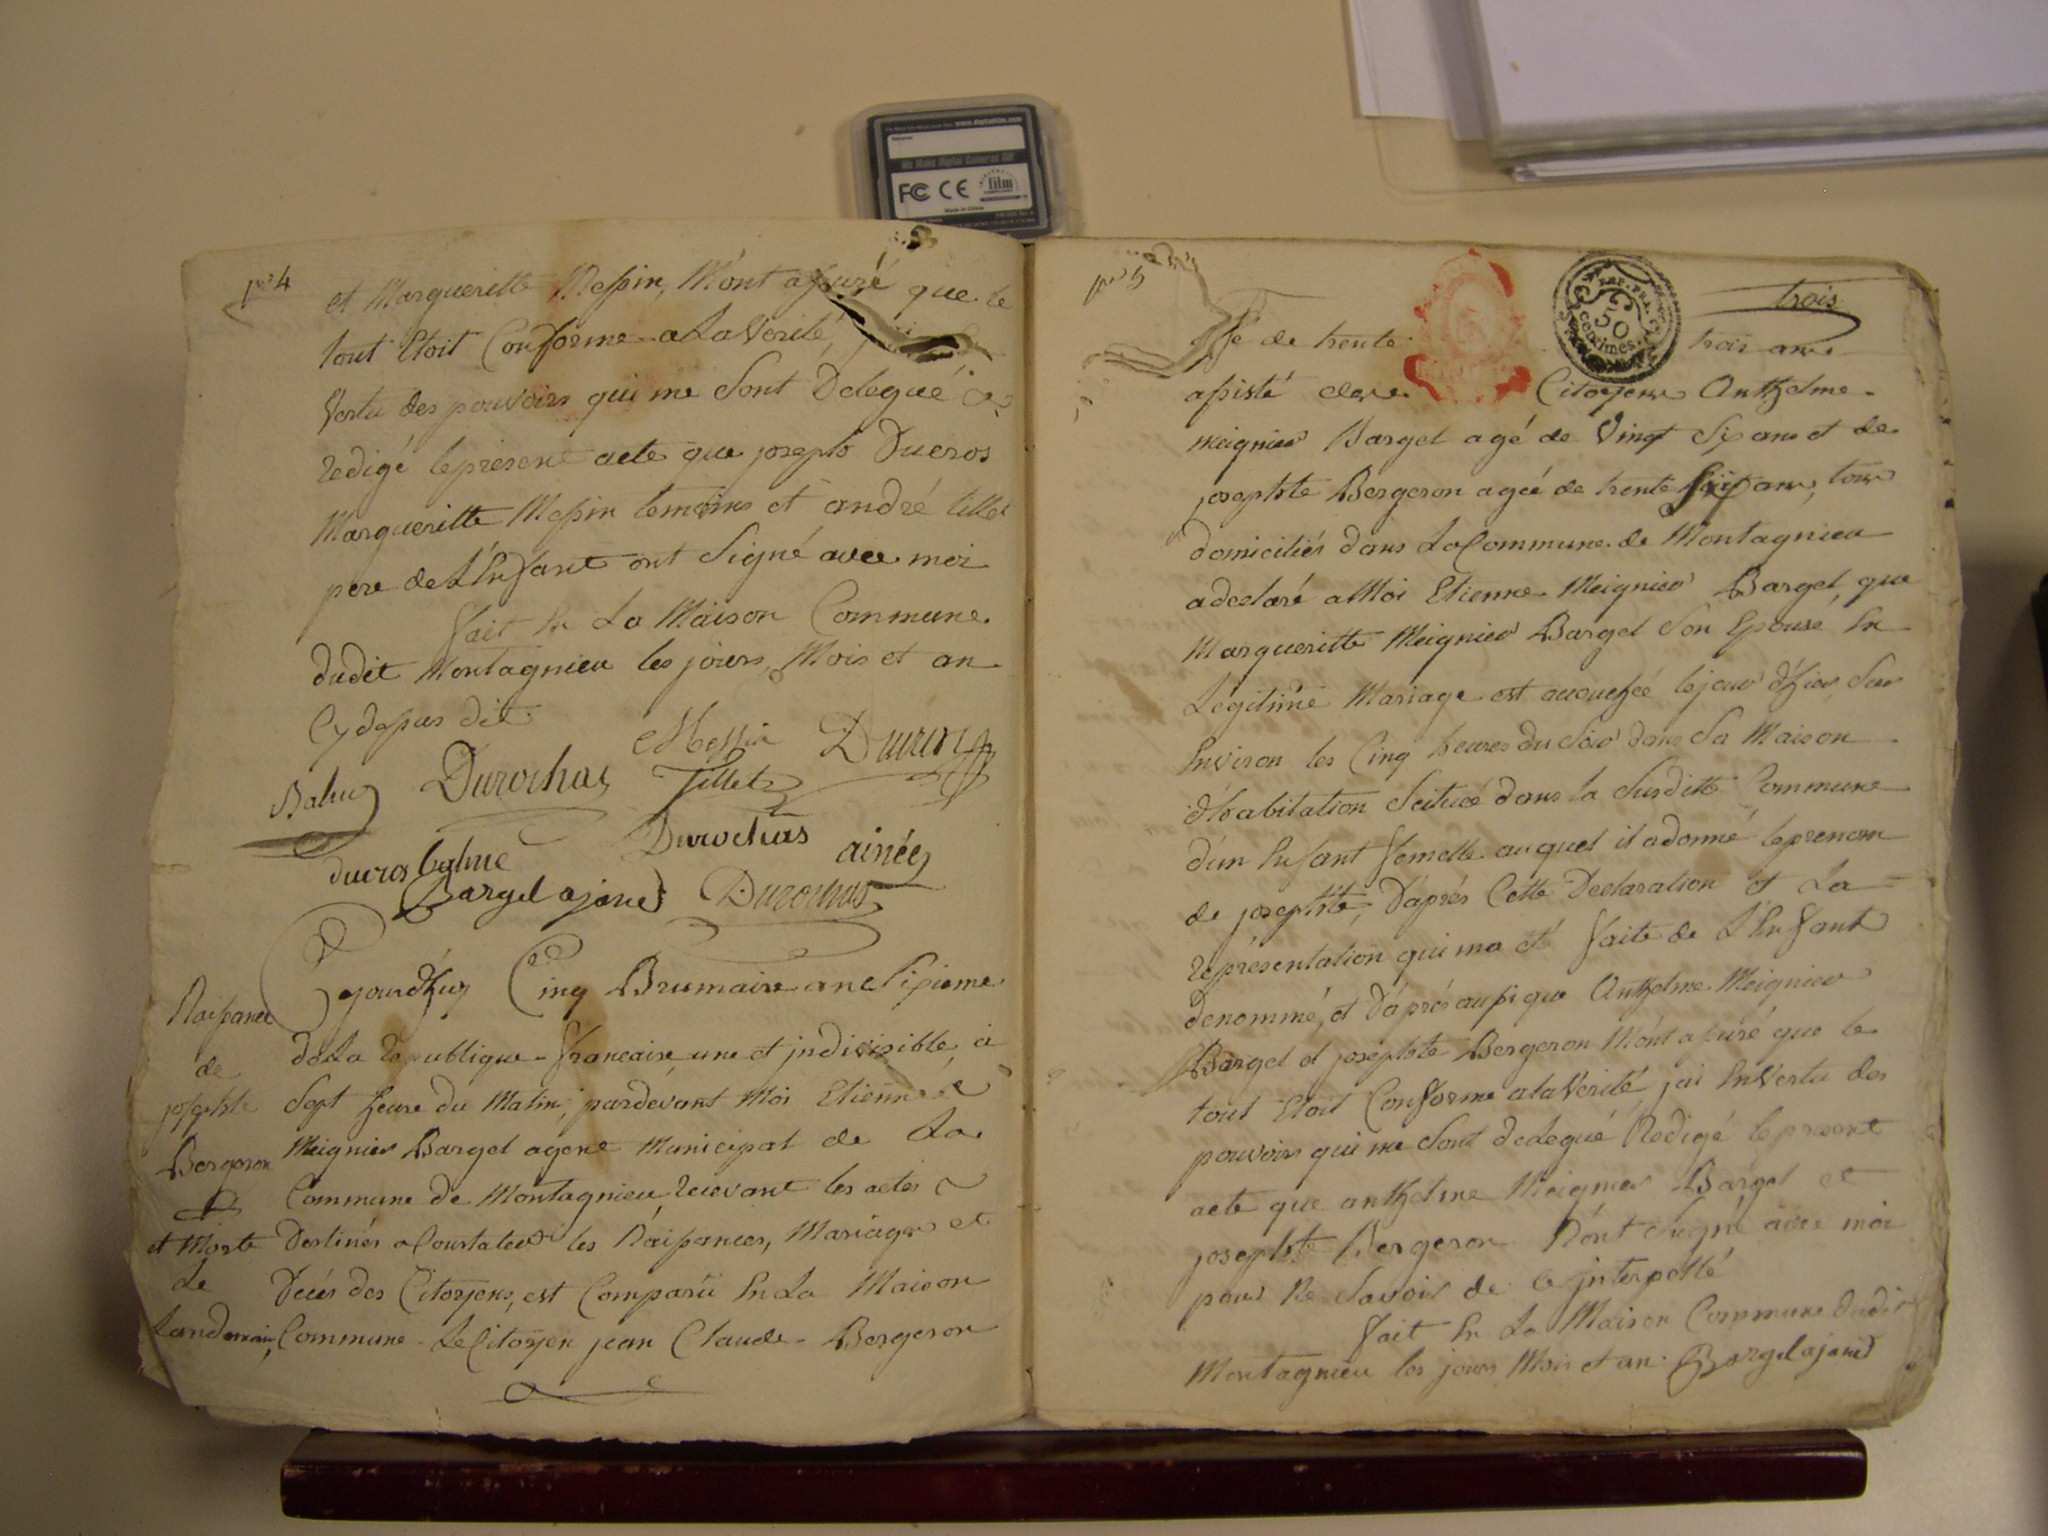 www.digitalfilm.com
We Make Digital Cameras Go!
FC CE
film
Made in China
et Margueritte Messin, M'ont assuré que le
tout Etoit Conforme a La Verité,
Vertu des pouvoirs qui me sont Delegué
redigé le present acte que joseph Ducros
Margueritte Messin temoins et andré tillet
pere de L'Enfant ont Signé avec moi
fait En La Maison Commune
dudit Montagnieu les jours, Mois et an
Cy dessus dit
Messin Ducros
Balme Durochas Tillet
Durochas ainée
ducros balme
Bargel agent Durochas
Naissance
de
josephte
Bergeron
et Morte
Le
Landemain,
jourd'huy Cinq Brumaire an Sixieme
de La republique francaise une et jndivisible, à
Sept heure du Matin, pardevant Moi Etienne
Meignier Bargel agent Municipal de La
Commune de Montagnieu, recevant les actes
Destinés a Constater les Naissances, Mariages et
Décés des Citoyens, est Comparü En La Maison
Commune Le Citoyen jean Claude Bergeron
trois
50
centimes
de trente trois ans
assisté des Citoyens Anthelme
Meignier Bargel agé de Vingt Six ans et de
josephte Bergeron agée de trente ans, tous
domiciliés dans La Commune de Montagnieu
a declaré a Moi Etienne Meignier Bargel, que
Margueritte Meignier Bargel Son Epouse En
Légitime Mariage est accouchée le jour d'hier Sur
Environ les Cinq heures du Soir dans Sa Maison
d'habitation Scituée dans la Susditte Commune
d'un Enfant femelle auquel il a donné le prenom
de josephte, D'aprés Cette Declaration et La
représentation qui ma été faite de L'Enfant
denommé, et D'aprés aussi que Anthelme Meignier
Bargel et josephte Bergeron M'ont assuré que le
tout Etoit Conforme a la Verité, jai En Vertu des
pouvoirs qui me Sont delegué Redigé le present
acte que anthelme Meignier Bargel et
josephte Bergeron N'ont Signé avec moi
pour Ne Savoir de ce jnterpellé
fait En La Maison Commune dudit
Montagnieu les jours Mois et an Bargel agent